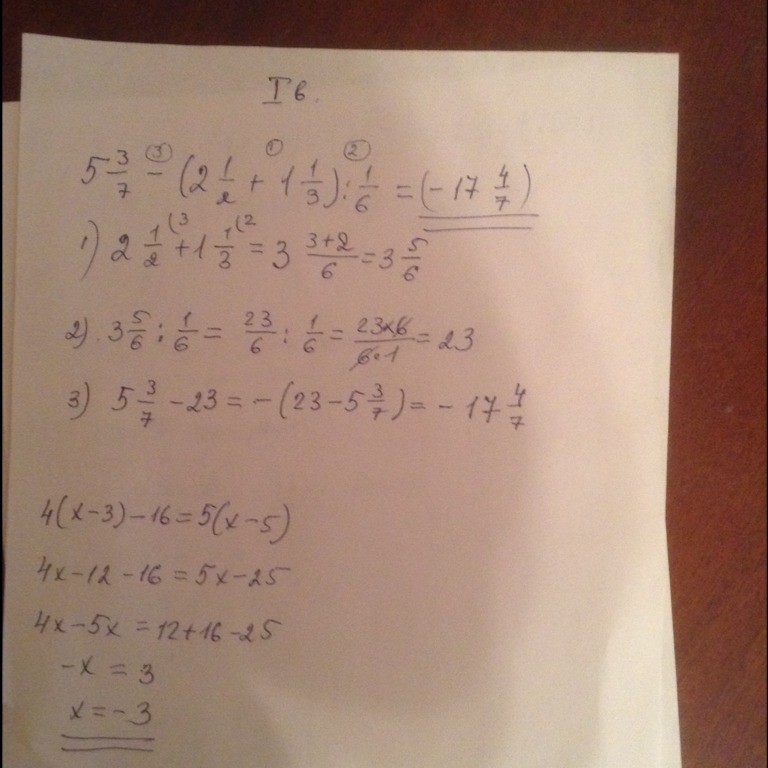 I в.
5 3/7 -③ (2 1/2 +① 1 1/3) :② 1/6 = (-17 4/7)
1) 2 1/2 (3 + 1 1/3 (2 = 3 3+2/6 = 3 5/6
2). 3 5/6 : 1/6 = 23/6 : 1/6 = 23×6/6·1 = 23
3) 5 3/7 - 23 = -(23 - 5 3/7) = - 17 4/7
4(x-3)-16=5(x-5)
4x-12-16=5x-25
4x-5x=12+16-25
-x = 3
x = -3